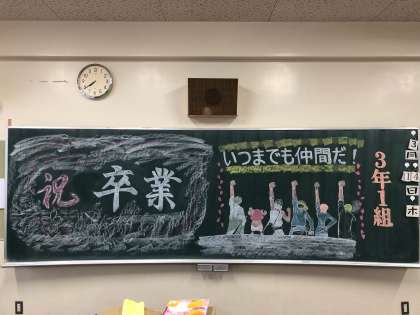 祝 卒業
いつまでも仲間だ!
3年1組
3月14日 木